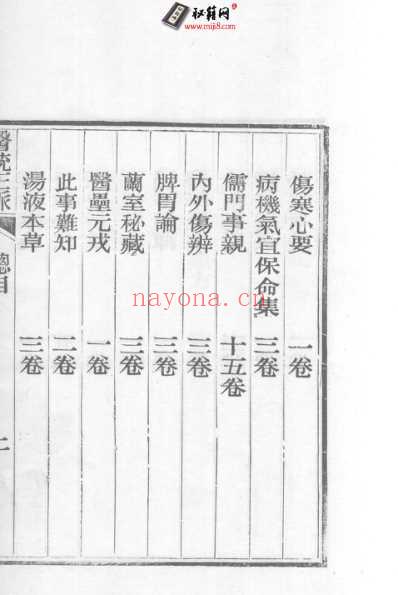 秘籍网
www.miji8.com
傷寒心要 一卷
病機氣宜保命集 三卷
儒門事親 十五卷
內外傷辨 三卷
脾胃論 三卷
蘭室秘藏 三卷
醫壘元戎 一卷
此事難知 二卷
湯液本草 三卷
醫統正脉 總目
nayona.cn